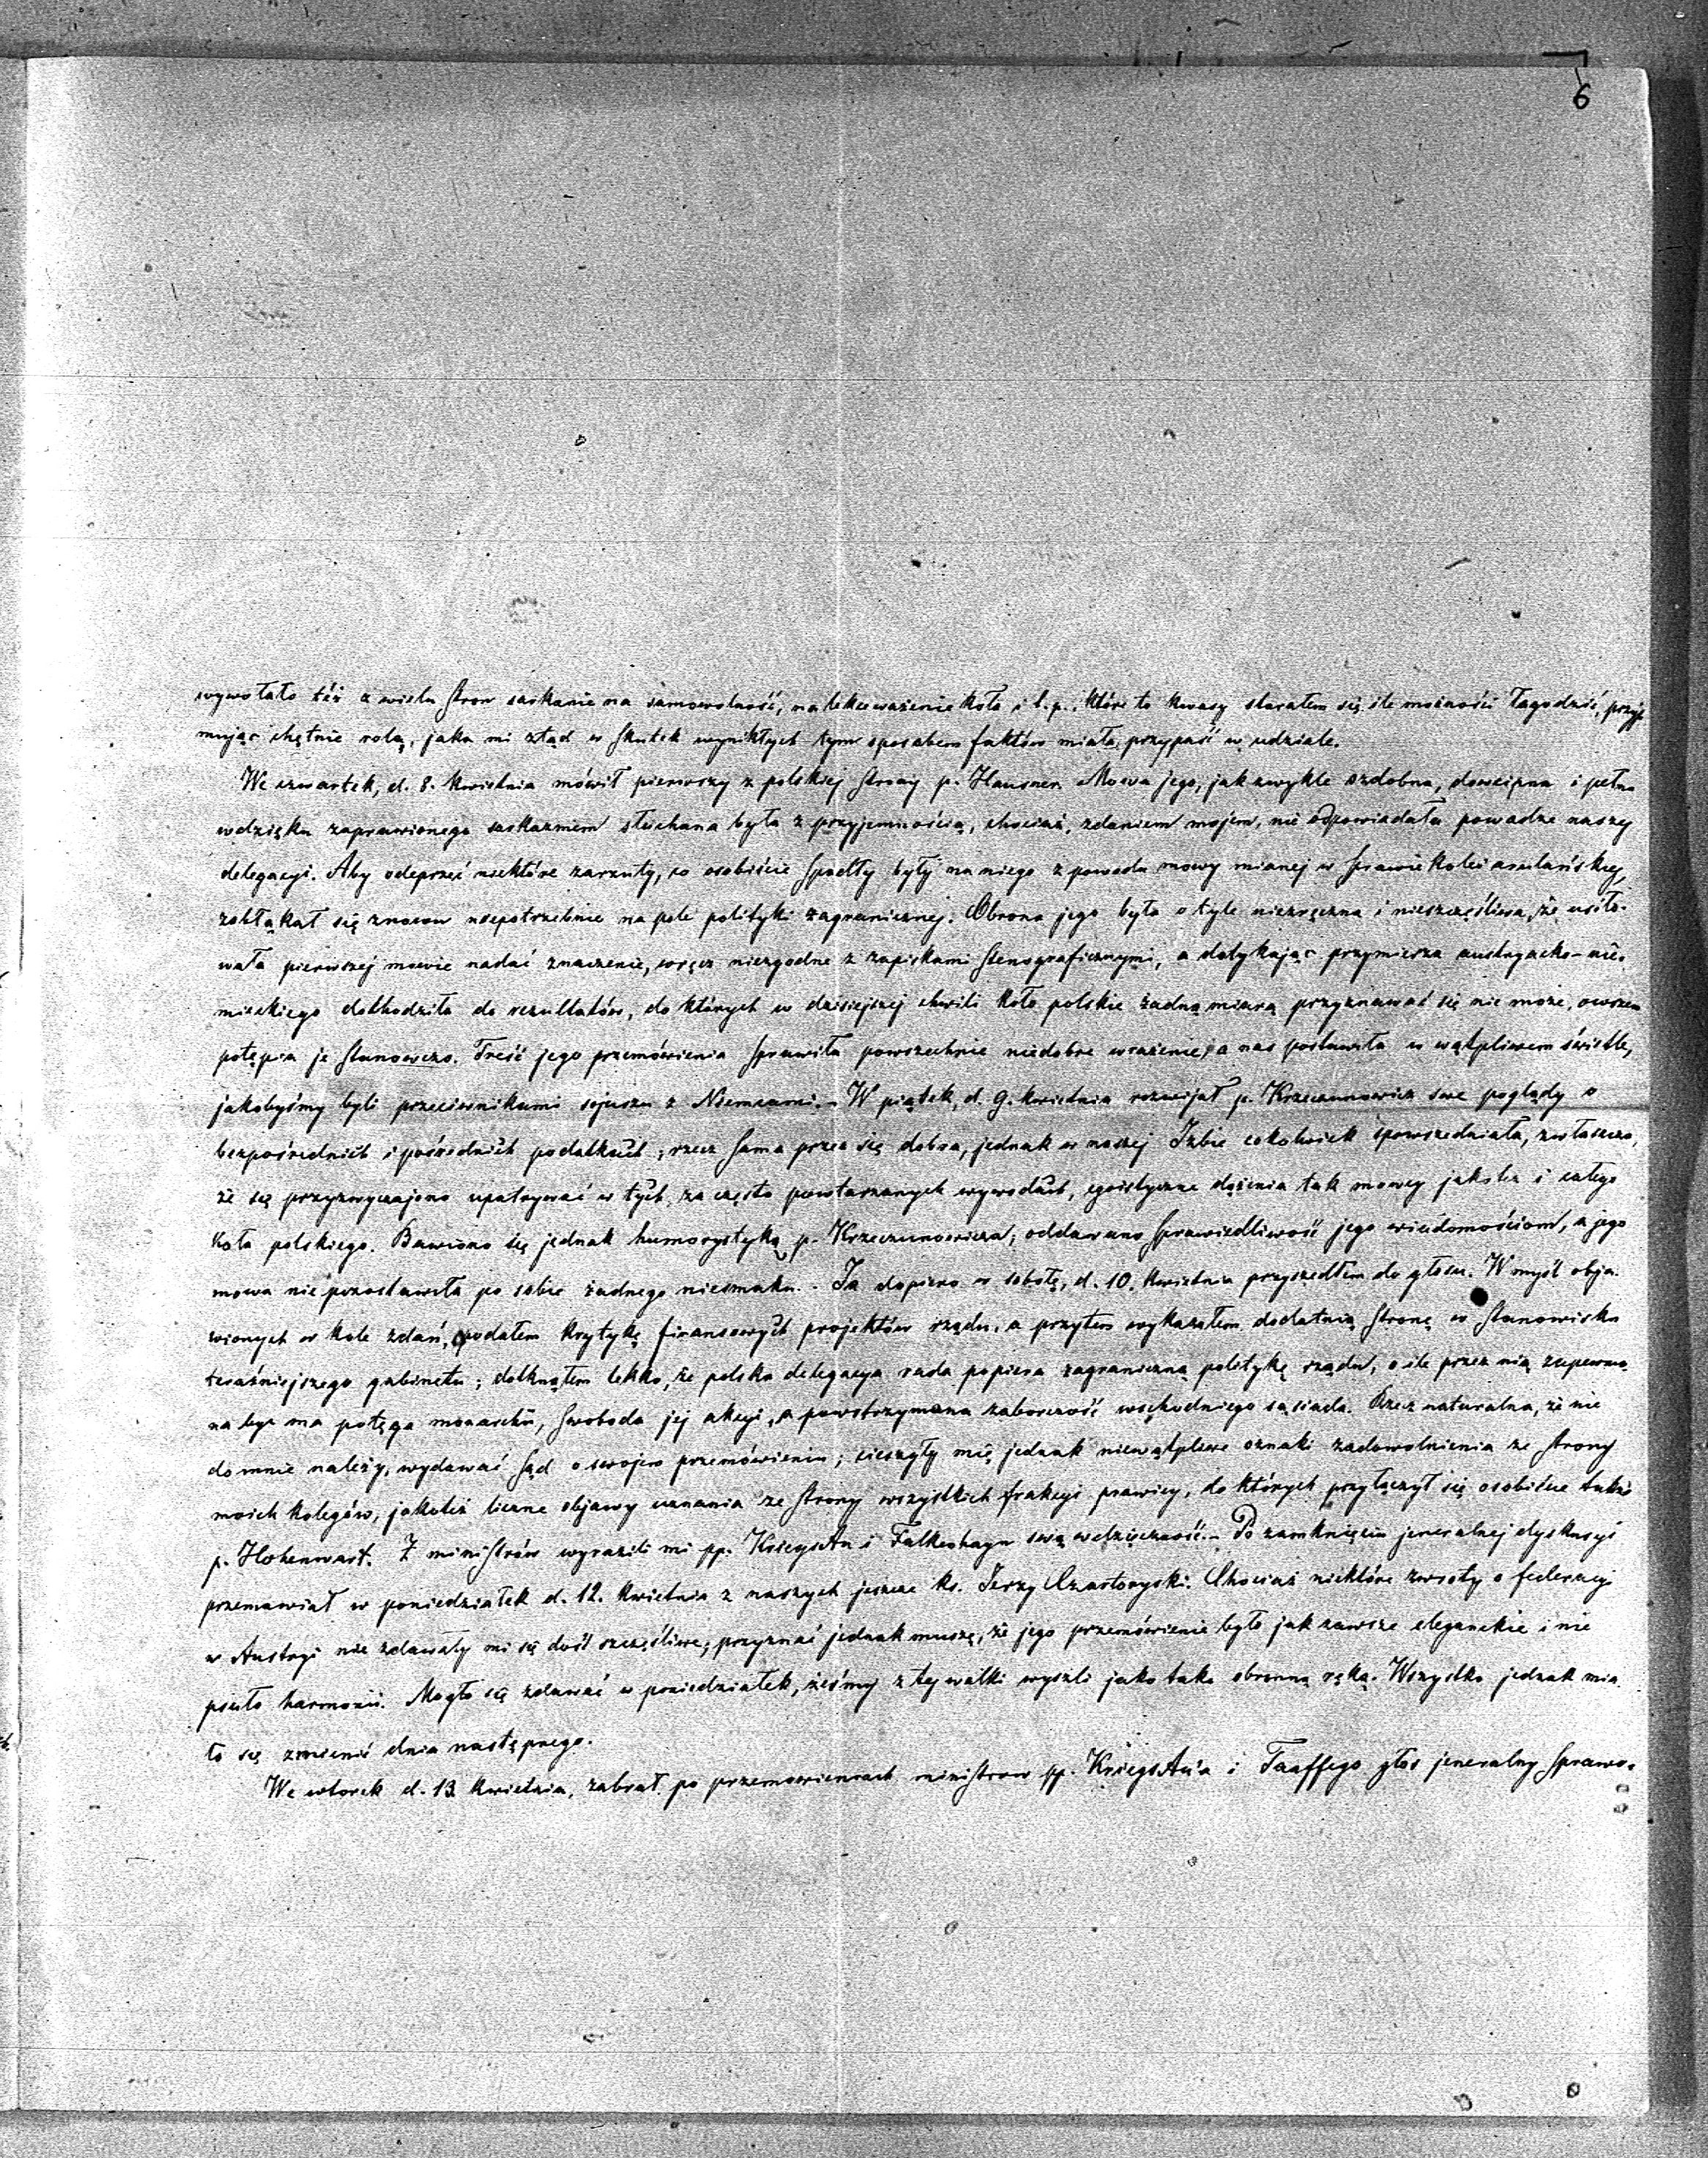 6
wywołało też z wielu stron sarkanie na samowolność, na lekceważenie Koła i t. p. Które to kwasy starałem się ile możności łagodzić, przyj-
mując chętnie rolę, jaka mi ztąd w skutek wynikłych tym sposobem faktów miała przypaść w udziale.
We czwartek, d. 8. kwietnia mówił pierwszy z polskiej strony p. Hausner. Mowa jego, jak zwykle ozdobna, dowcipna i pełna
wdzięku zaprawionego sarkazmem słuchana była z przyjemnością, chociaż, zdaniem mojem, nie odpowiadała powadze naszej
delegacyi. Aby odeprzeć niektóre zarzuty, co osobiście spadły były na niego z powodu mowy mianej w sprawie kolei arulańskiej,
zabłąkał się znowu niepotrzebnie na pole polityki zagranicznej. Obrona jego była o tyle niezręczna i nieszczęśliwa, że usiło-
wała pierwszej mowie nadać znaczenie, wręcz niezgodne z zapiskami stenograficznymi, a dotykając przymierza austryacko-nie-
mieckiego dochodziła do rezultatów, do których w dzisiejszej chwili Koło polskie żadną miarą przyznawać się nie może, owszem
potępia je stanowczo. Treść jego przemówienia sprawiła powszechnie niedobre wrażenie, a nas postawiła w wątpliwem świetle,
jakobyśmy byli przeciwnikami sojuszu z Niemcami. – W piątek, d. 9. kwietnia rozwijał p. Krzeczunowicz swe poglądy o
bezpośrednich i pośrednich podatkach; rzecz sama przez się dobra, jednak w naszej Izbie cokolwiek spowszedniała, zwłaszcza,
że się przyzwyczajono upatrywać w tych, za często powtarzanych wywodach, egoistyczne dążenia tak mowcy jakoteż i całego
Koła polskiego. Bawiono się jednak humorystyką p. Krzeczunowicza; oddawano sprawiedliwość jego wiadomościom, a jego
mowa nie pozostawiła po sobie żadnego niesmaku. – Ja dopiero w sobotę, d. 10. kwietnia przyszedłem do głosu. W myśl obja-
wionych w kole zdań, podałem krytykę finansowych projektów rządu, a przytem wykazałem dodatnią stronę w stanowisku
teraźniejszego gabinetu; dotknąłem lekko, że polska delegacya rada popiera zagraniczną politykę rządu, o ile przez nią zapewnio-
na być ma potęga monarchii, swoboda jej akcyi, a powstrzymana zaborczość wschodniego sąsiada. Rzecz naturalna, że nie
do mnie należy, wydawać sąd o swojem przemówieniu; cieszyły mię jednak niewątpliwe oznaki zadowolnienia ze strony
moich kolegów, jakoteż liczne objawy uznania ze strony wszystkich frakcyi prawicy, do których przyłączył się osobiście także
p. Hohenwart. Z ministrów wyrazili mi pp. KriegsAu i Falkenhayn swą wdzięczność. – Po zamknięciu jeneralnej dyskusyi
przemawiał w poniedziałek d. 12. kwietnia z naszych jeszcze ks. Jerzy Czartoryski. Chociaż niektóre zwroty o federacyi
w Austryi nie zdawały mi się dość szczęśliwe; przyznać jednak muszę, że jego przemówienie było jak zawsze eleganckie i nie
psuło harmonii. Mogło się zdawać w poniedziałek, żeśmy z tej walki wyszli jako tako obronną ręką. Wszystko jednak mia-
ło się zmienić dnia następnego.
We wtorek d. 13 kwietnia, zabrał po przemowieniach ministrow pp. KriegsAu'a i Taaffego głos jeneralny sprawo-